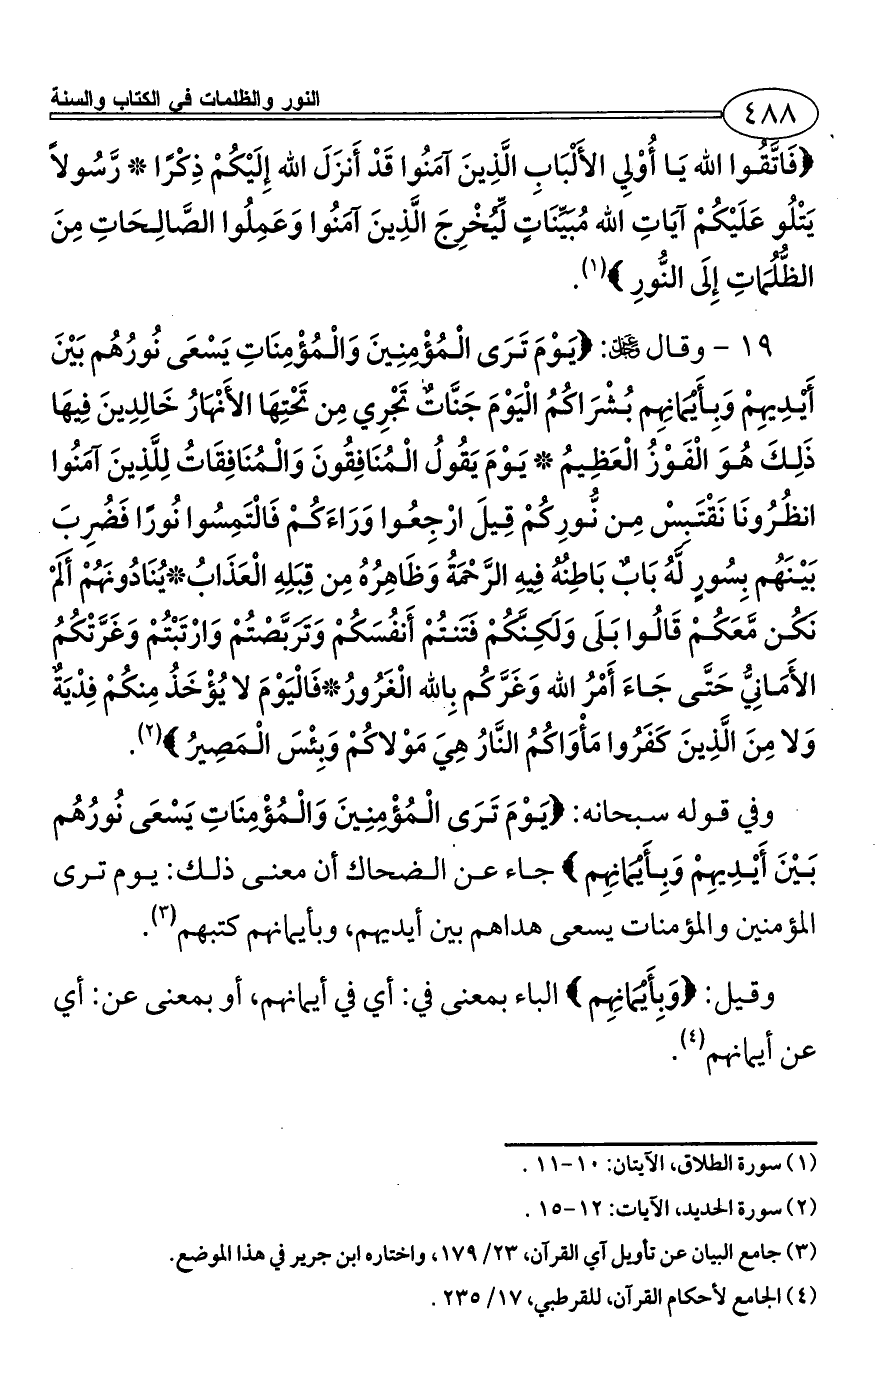 النور والظلمات في الكتاب والسنة
٤٨٨
﴿فَاتَّقُوا الله يَا أُوْلِي الأَلْبَابِ الَّذِينَ آمَنُوا قَدْ أَنزَلَ الله إِلَيْكُمْ ذِكْرًا * رَّسُولاً
يَتْلُو عَلَيْكُمْ آيَاتِ الله مُبَيِّنَاتٍ لِّيُخْرِجَ الَّذِينَ آمَنُوا وَعَمِلُوا الصَّالِحَاتِ مِنَ
الظُّلُمَاتِ إِلَى النُّورِ﴾(١).
١٩ - وقال ﷺ: ﴿يَوْمَ تَرَى الْمُؤْمِنِينَ وَالْمُؤْمِنَاتِ يَسْعَى نُورُهُم بَيْنَ
أَيْدِيهِمْ وَبِأَيْمَانِهِم بُشْرَاكُمُ الْيَوْمَ جَنَّاتٌ تَجْرِي مِن تَحْتِهَا الأَنْهَارُ خَالِدِينَ فِيهَا
ذَلِكَ هُوَ الْفَوْزُ الْعَظِيمُ * يَوْمَ يَقُولُ الْمُنَافِقُونَ وَالْمُنَافِقَاتُ لِلَّذِينَ آمَنُوا
انظُرُونَا نَقْتَبِسْ مِن نُّورِكُمْ قِيلَ ارْجِعُوا وَرَاءَكُمْ فَالْتَمِسُوا نُورًا فَضُرِبَ
بَيْنَهُم بِسُورٍ لَّهُ بَابٌ بَاطِنُهُ فِيهِ الرَّحْمَةُ وَظَاهِرُهُ مِن قِبَلِهِ الْعَذَابُ*يُنَادُونَهُمْ أَلَمْ
نَكُن مَّعَكُمْ قَالُوا بَلَى وَلَكِنَّكُمْ فَتَنتُمْ أَنفُسَكُمْ وَتَرَبَّصْتُمْ وَارْتَبْتُمْ وَغَرَّتْكُمُ
الأَمَانِيُّ حَتَّى جَاءَ أَمْرُ الله وَغَرَّكُم بِالله الْغَرُورُ*فَالْيَوْمَ لا يُؤْخَذُ مِنكُمْ فِدْيَةٌ
وَلا مِنَ الَّذِينَ كَفَرُوا مَأْوَاكُمُ النَّارُ هِيَ مَوْلاكُمْ وَبِئْسَ الْمَصِيرُ﴾(٢).
وفي قوله سبحانه: ﴿يَوْمَ تَرَى الْمُؤْمِنِينَ وَالْمُؤْمِنَاتِ يَسْعَى نُورُهُم
بَيْنَ أَيْدِيهِمْ وَبِأَيْمَانِهِم﴾ جاء عن الضحاك أن معنى ذلك: يوم ترى
المؤمنين والمؤمنات يسعى هداهم بين أيديهم، وبأيمانهم كتبهم(٣).
وقيل: ﴿وَبِأَيْمَانِهِم﴾ الباء بمعنى في: أي في أيمانهم، أو بمعنى عن: أي
عن أيمانهم(٤).
(١) سورة الطلاق، الآيتان: ١٠-١١ .
(٢) سورة الحديد، الآيات: ١٢-١٥ .
(٣) جامع البيان عن تأويل آي القرآن، ٢٣/ ١٧٩، واختاره ابن جرير في هذا الموضع.
(٤) الجامع لأحكام القرآن، للقرطبي، ١٧/ ٢٣٥ .